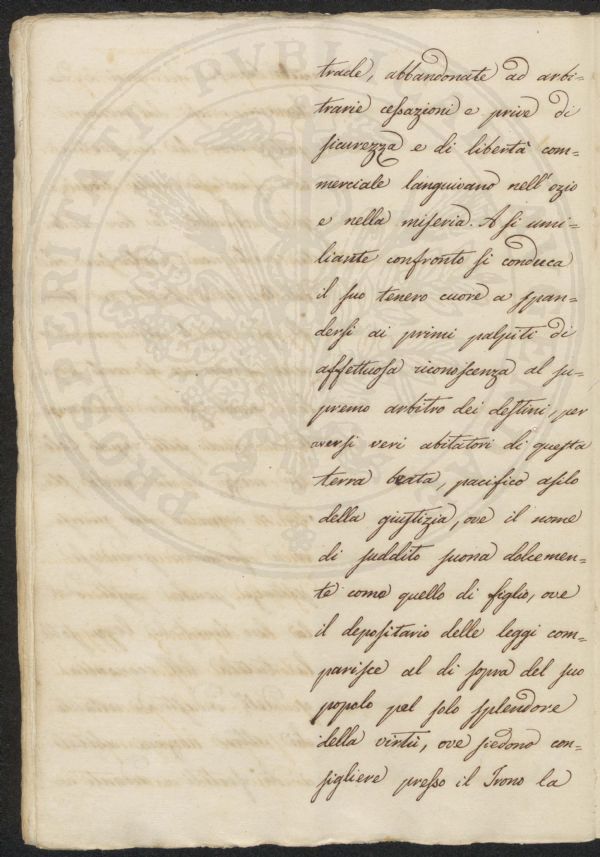 PROSPERITATI PVBLICAE
trade, abbandonate ad arbi-
trarie cessazioni e prive di
sicurezza e di libertà com-
merciale languivano nell'ozio
e nella miseria. A si umi-
liante confronto si conduca
il suo tenero cuore a span-
dersi ai primi palpiti di
affettuosa riconoscenza al su-
premo arbitro dei destini, per
aversi veri abitatori di questa
terra beata, pacifico asilo
della giustizia, ove il nome
di suddito suona dolcemen-
te come quello di figlio, ove
il depositario delle leggi com-
parisce al di sopra del suo
popolo pel solo splendore
della virtù, ove siedono con-
sigliere presso il Trono la